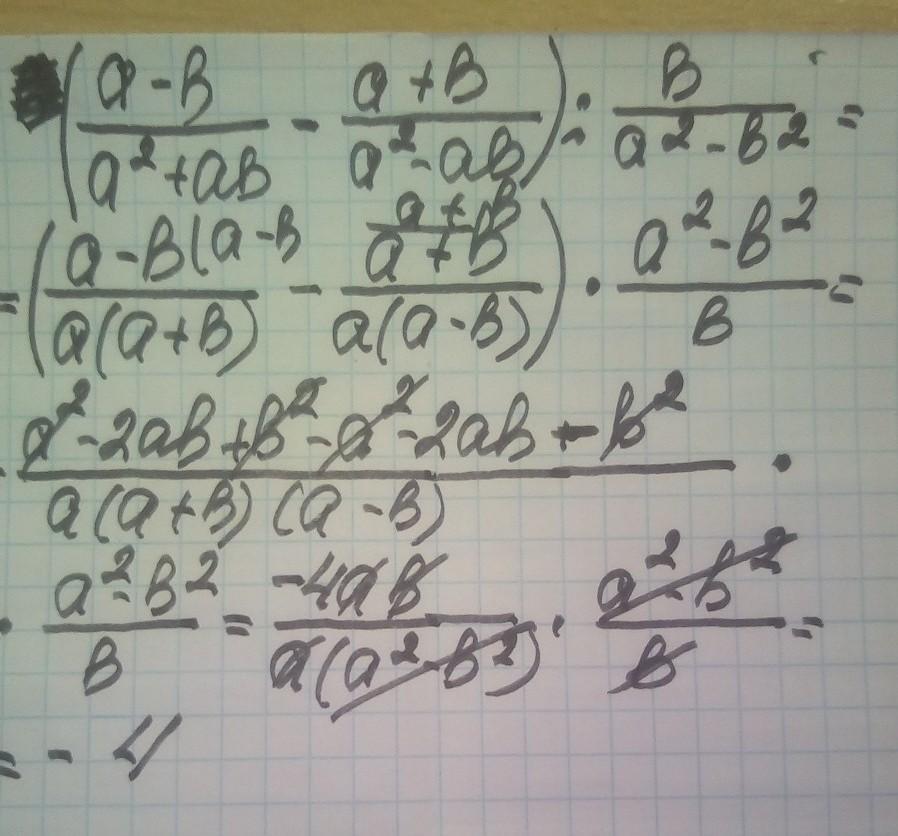 ( (a-b)/(a²+ab) - (a+b)/(a²-ab) ) : b/(a²-b²) =
= ( (a-b(a-b)/(a(a+b)) - (a+b a+b)/(a(a-b)) ) · (a²-b²)/b =
(a²-2ab+b²-a²-2ab-b²)/(a(a+b)(a-b)) ·
· (a²-b²)/b = (-4ab)/(a(a²-b²)) · (a²-b²)/b =
= -4